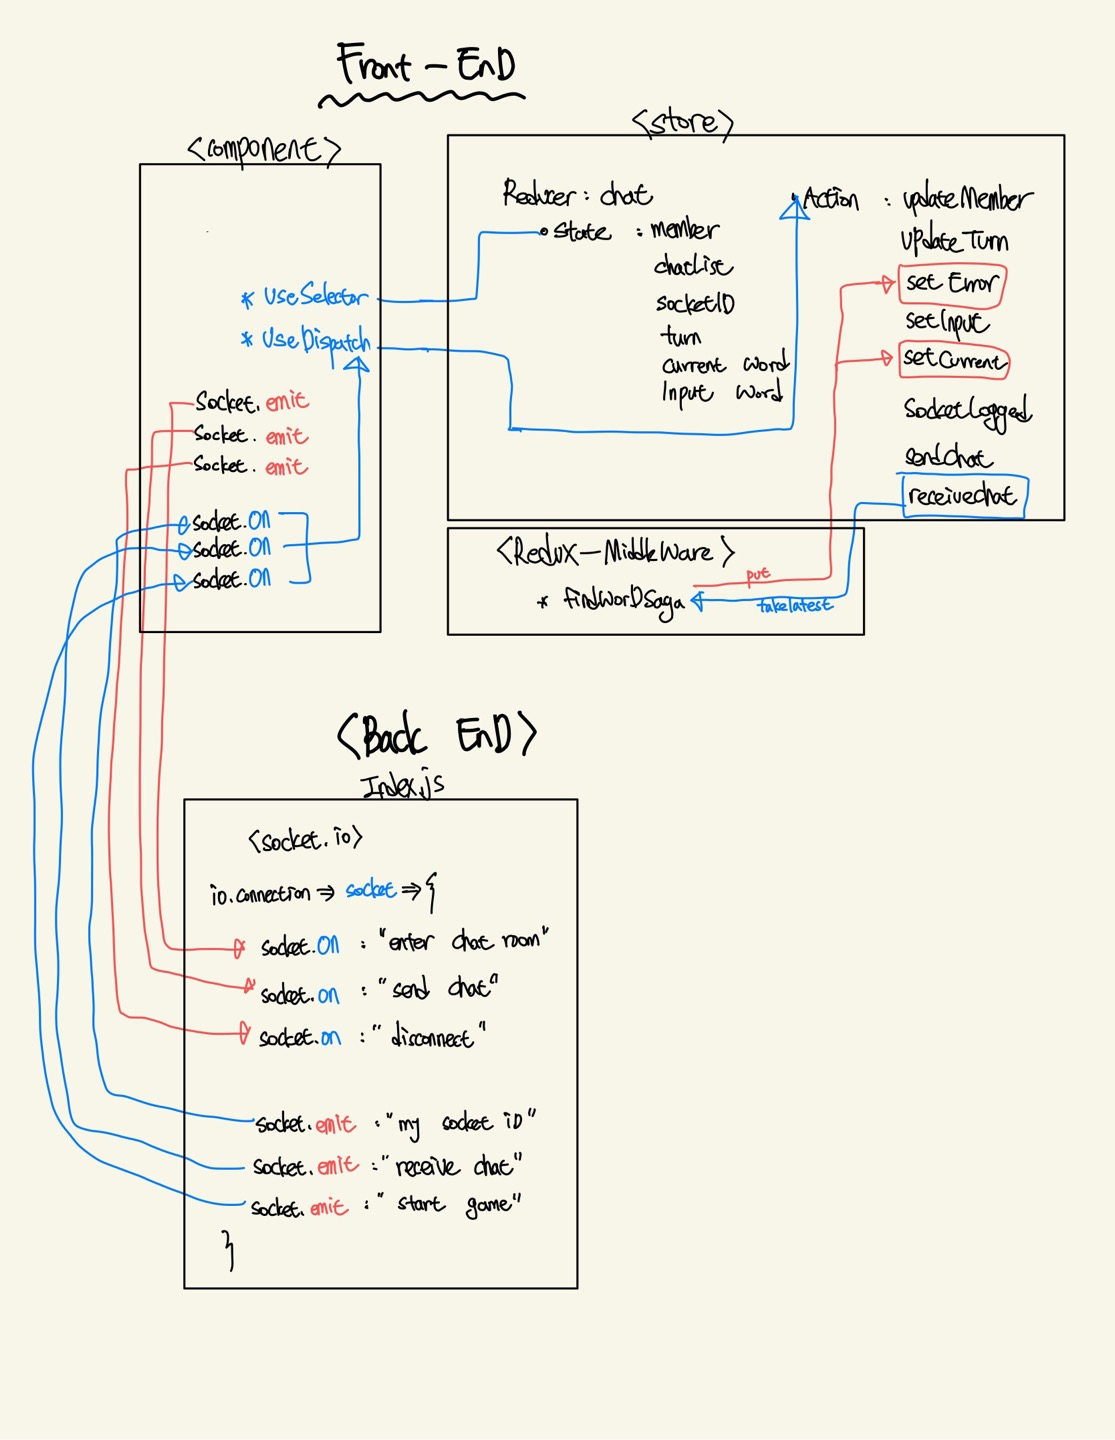 Front - EnD
<component>
* UseSelector
* UseDispatch
Socket. emit
Socket. emit
Socket. emit
socket.On
socket.On
socket.On
<store>
Reducer : chat
State : member
chatList
socketID
turn
current word
Input word
Action : updateMember
UpdateTurn
setError
setInput
setCurrent
SocketLogged
sendchat
receivechat
<Redux-MiddleWare>
put
* findWorDSaga
takelatest
<Back EnD>
Index.js
<socket.io>
io.connection => socket => {
socket.on : "enter chat room"
socket.on : "send chat"
socket.on : "disconnect"
socket.emit : "my socket iD"
socket.emit : "receive chat"
socket.emit : "start game"
}